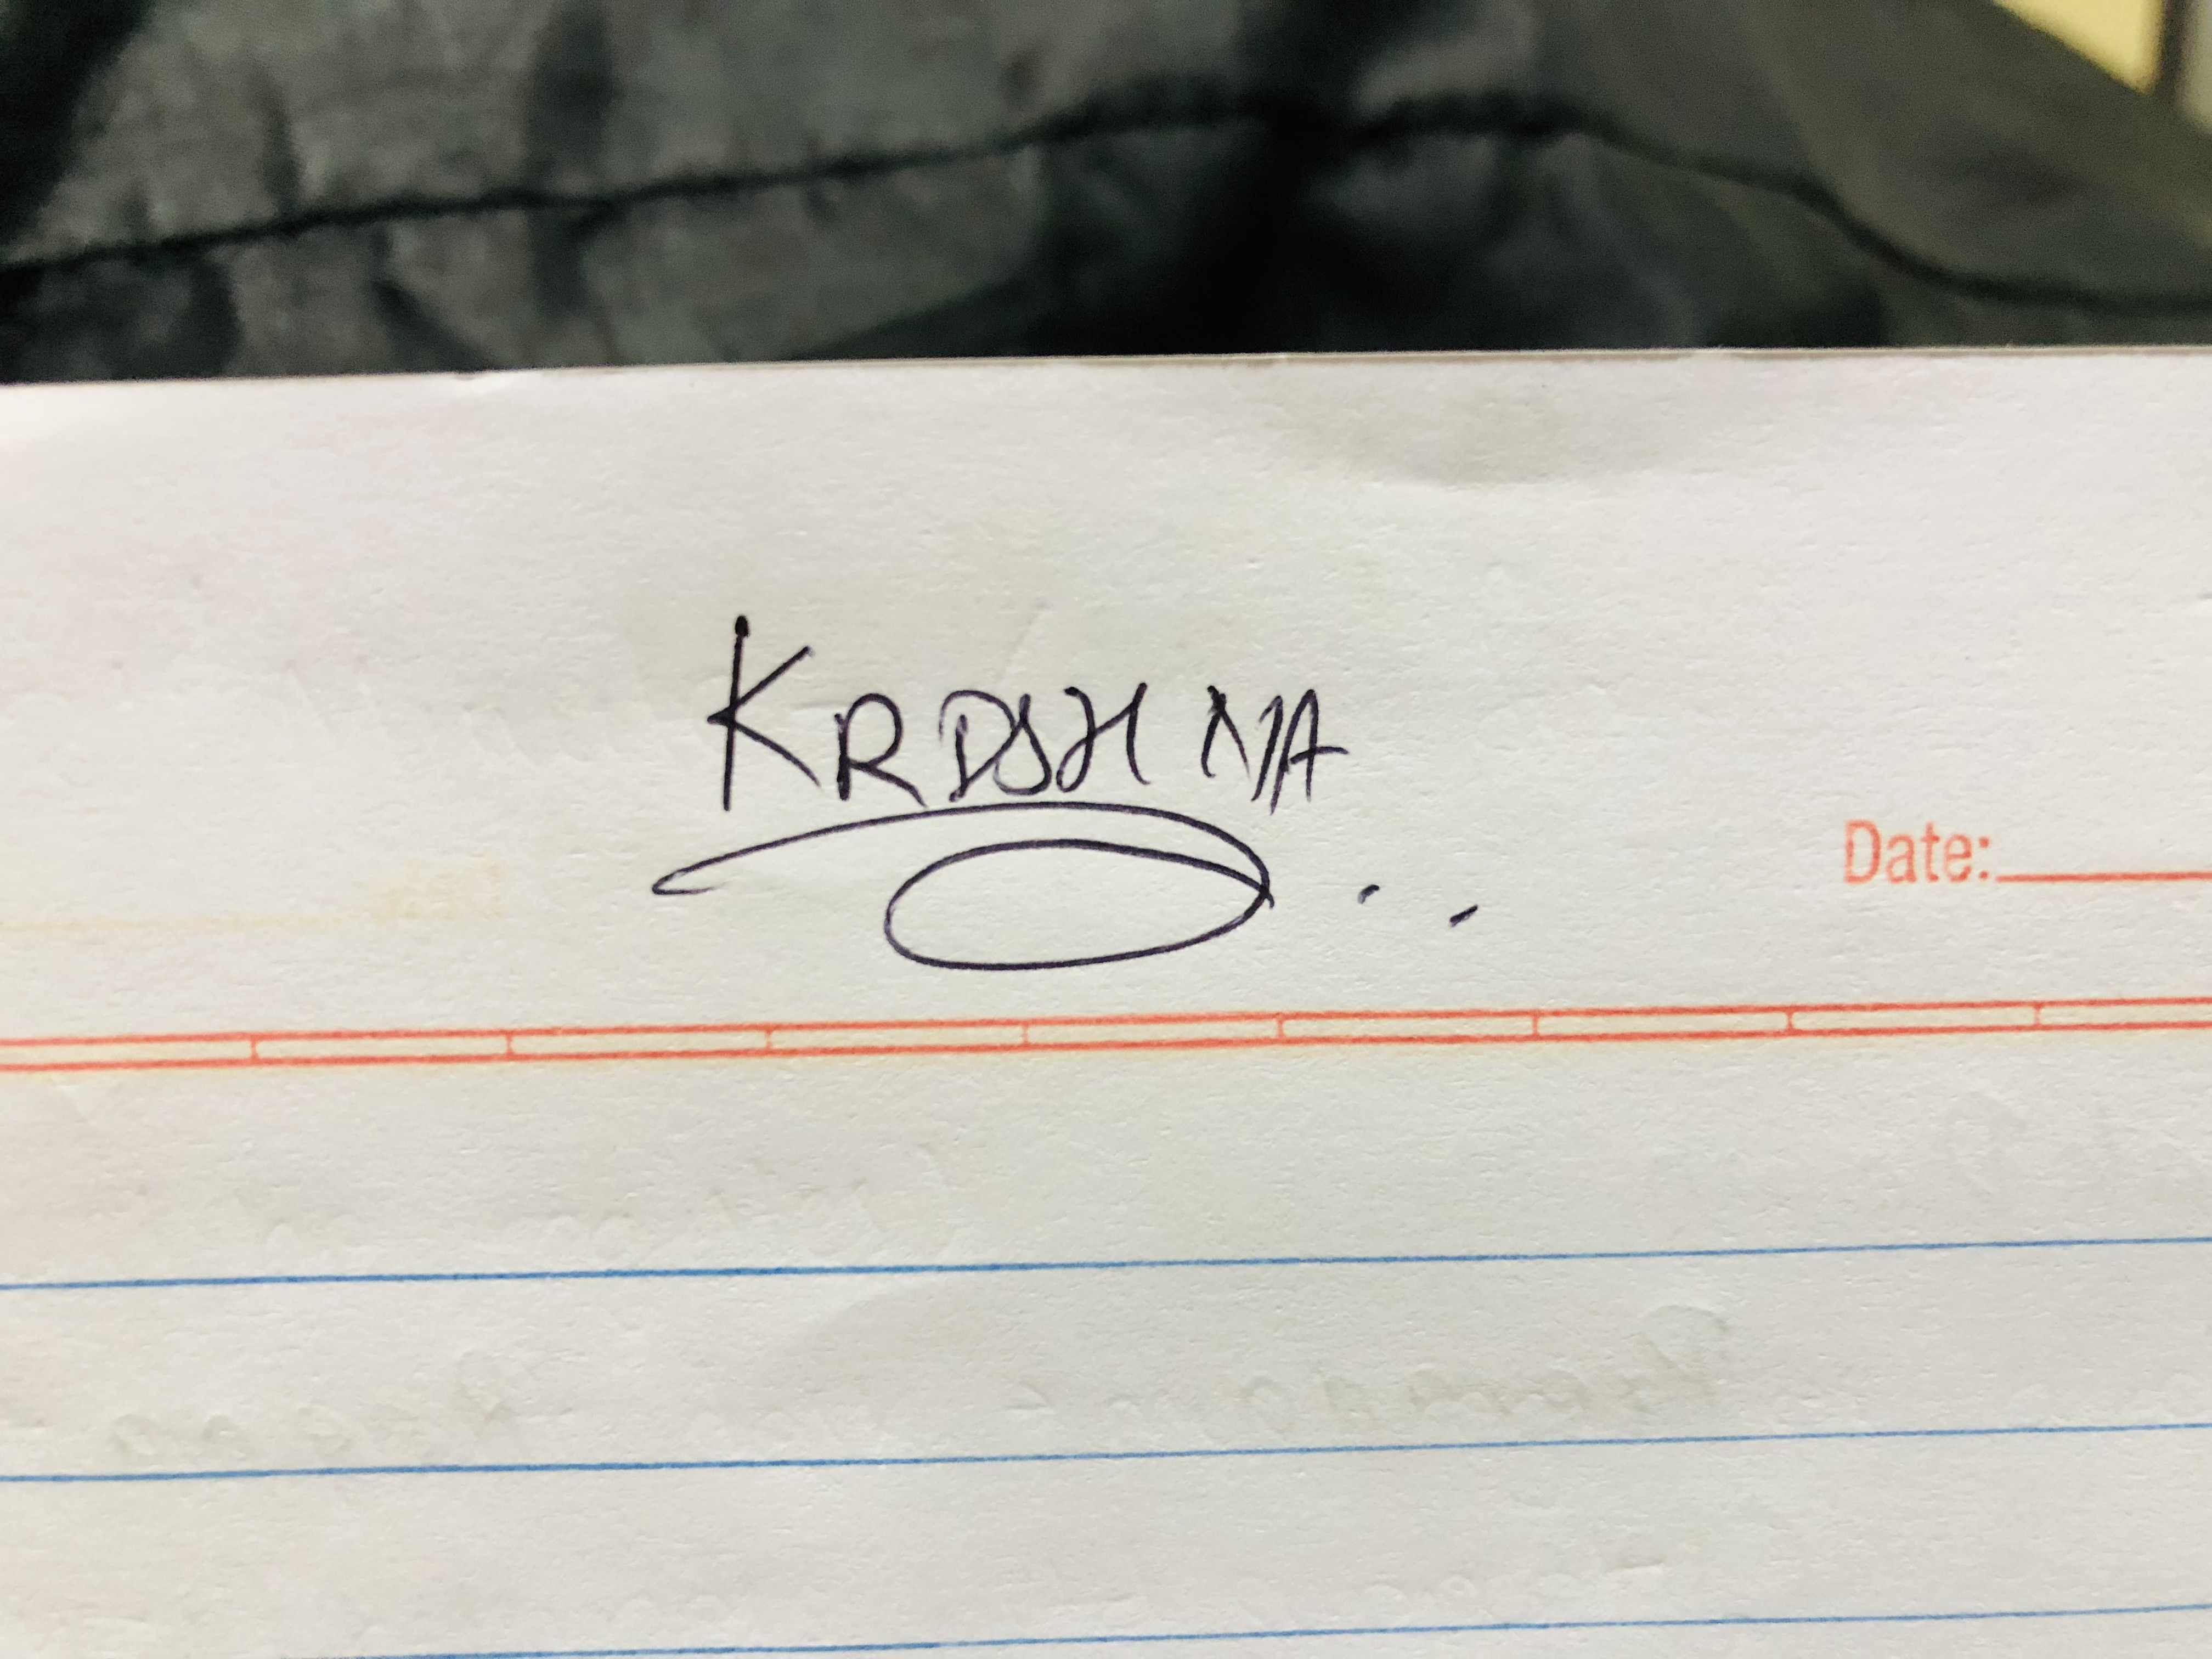 KRDSHNA
Date: